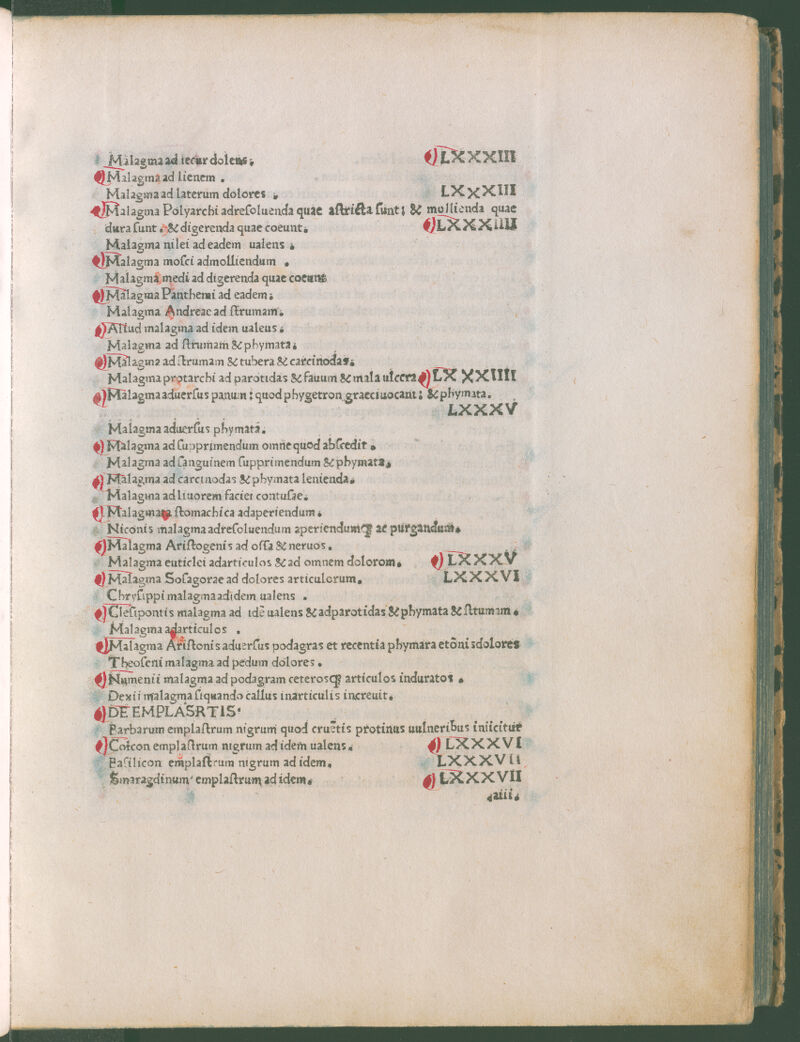 Malagma ad iecur dolens. LXXXIII
Malagma ad lienem .
Malagma ad laterum dolores . LXXXIII
Malagma Polyarchi adreſoluenda quae aſtricta ſunt; & mollienda quae
dura ſunt . & digerenda quae coeunt. LXXXiiii
Malagma nilei ad eadem ualens .
Malagma moſci admolliendum .
Malagma medi ad digerenda quae coeunt
Malagma Panthemi ad eadem;
Malagma Andreae ad ſtrumam.
Aliud malagma ad idem ualeus .
Malagma ad ſtrumam & phymata.
Malagma ad ſtrumam & tubera & carcinodas.
Malagma protarchi ad parotidas & fauum & mala ulcera LXXXIIII
Malagma aduerſus panum: quod phygetron graeci uocant; & phymata.
LXXXV
Malagma aduerſus phymata.
Malagma ad ſupprimendum omne quod abſcedit .
Malagma ad ſanguinem ſupprimendum & phymata.
Malagma ad carcinodas & phymata lenienda.
Malagma ad liuorem faciei contuſae.
Malagmata ſtomachica adaperiendum .
Niconis malagma adreſoluendum aperiendumq; ac purgandum.
Malagma Ariſtogenis ad oſſa & neruos .
Malagma euticlei adarticulos & ad omnem dolorom. LXXXV
Malagma Soſagorae ad dolores articulorum. LXXXVI
Chryſippi malagma adidem ualens .
Cleſipontis malagma ad idē ualens & adparotidas & phymata & ſtumam .
Malagma adarticulos .
Malagma Ariſtonis aduerſus podagras et recentia phymara etōnisdolores
Theoſeni malagma ad pedum dolores .
Numenii malagma ad podagram ceterosq; articulos induratos .
Dexii malagma ſiquando callus inarticulis increuit.
DE EMPLASRTIS'
Barbarum emplaſtrum nigrum quod cruētis protinus uulneribus iniicitur
Coicon emplaſtrum nigrum ad idem ualens. LXXXVI
Baſilicon emplaſtrum nigrum ad idem. LXXXVii
Smaragdinum' emplaſtrum ad idem. LXXXVII
.aiii.